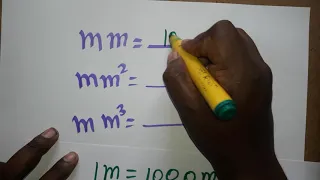 mm = 10
mm² =
mm³ =
1m = 1000m